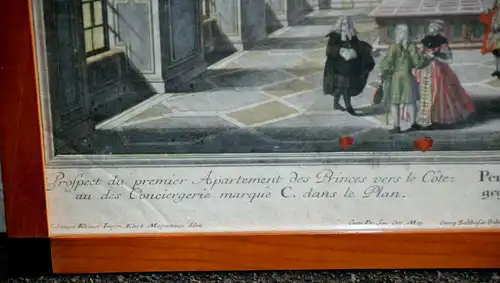 Prospect du premier Apartement des Princes vers le Côte-
au des Conciergerie marqué C. dans le Plan.
Per
gra
Kleiner Ingen. Elect. Mogunting delin.
Cum Pr. Sac. Cæs. Maj.
Georg Balthasar